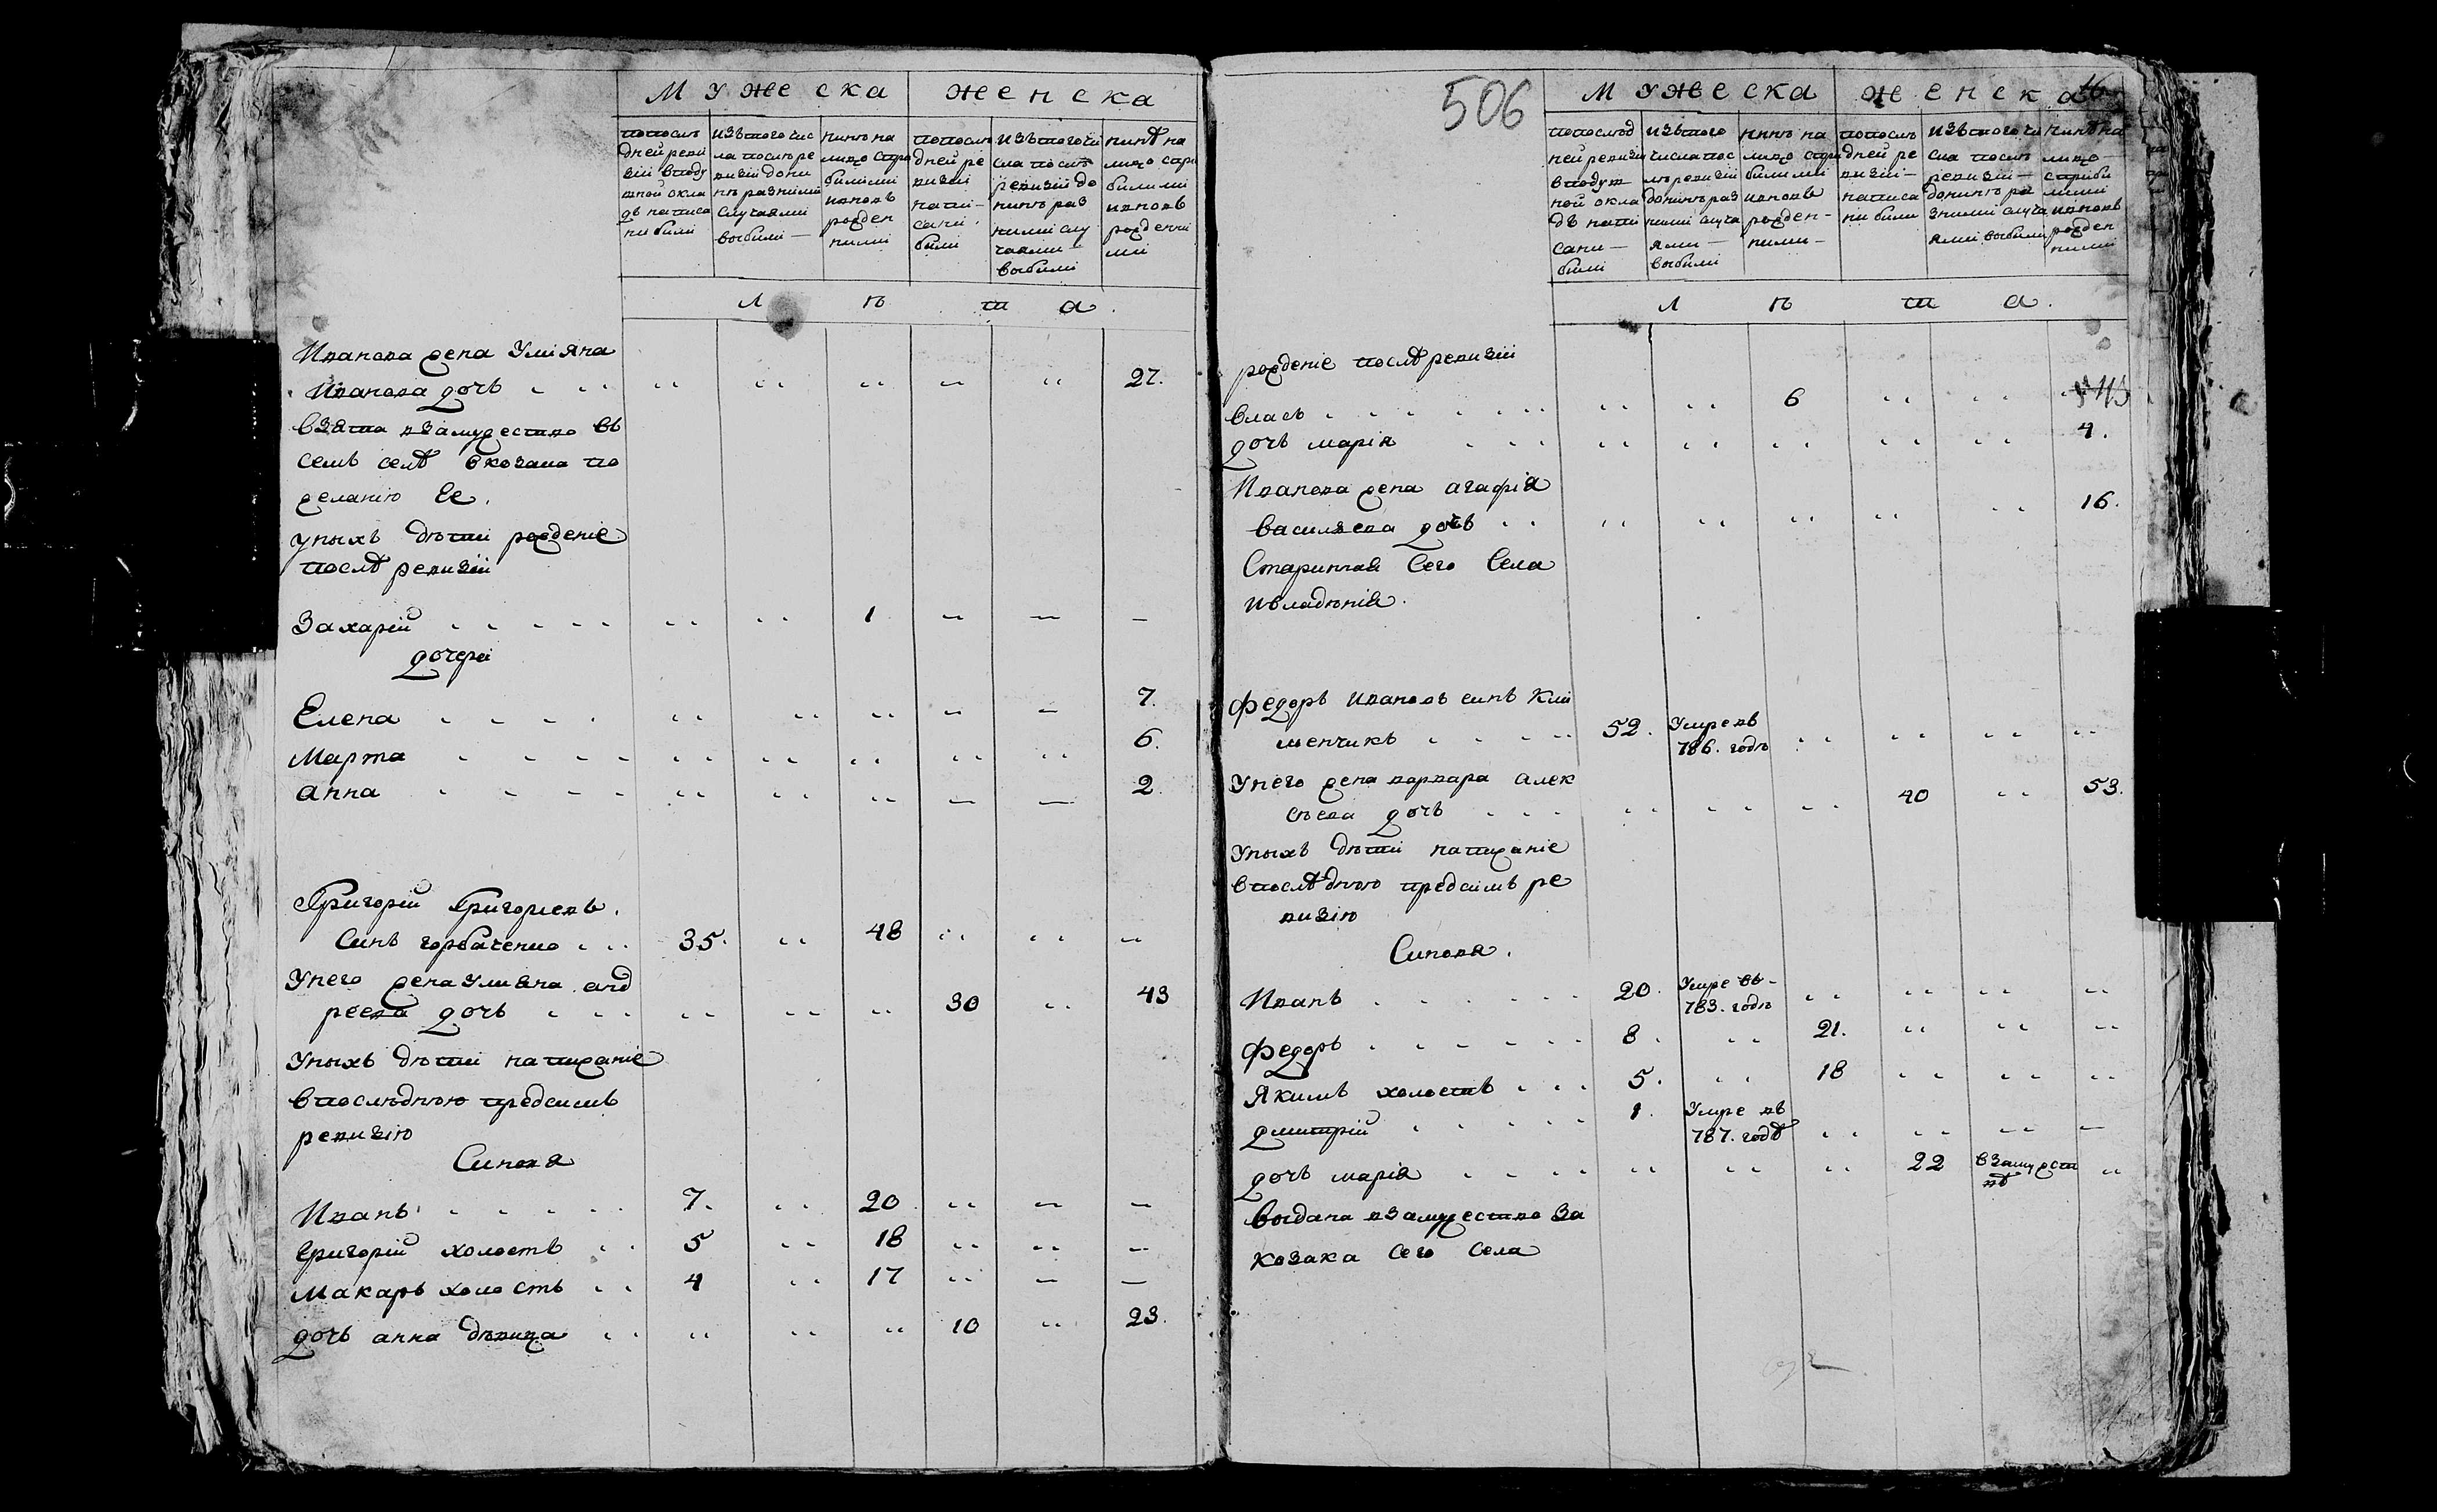 Мужеска Женска
попослѣ
дней реви
зіи вподу
шной окла
дъ написа
ни были
изътого чис
ла послѣ ре
визіи дони
нѣ разними
случаями
выбили —
нинѣ на
лицо стри
билими
ивновь
рожден
ними
попослѣ
дней ре
визіи
напи-
сани
были
изътого чи
сла послѣ
ревизіи до
нинѣ раз
ними слу
чаями
выбили
нинѣ на
лицо стри
билими
ивновь
рожденни
ми
л ѣ т а .
Иванова жена Уліяна
Иванова дочь 27.
взята взамужество въ
семъ селѣ скозака по
желанію Ее .
унихъ дѣти рожденіе
послѣ ревизіи
Захарій 1
дочери
Елена 7.
Марта 6.
анна 2
Григорій Григориевъ .
Синъ горбаченко 35. 48
Унего жена Уляна анд
реева дочь 30 43
Унихъ дѣти напиханіе
впослѣднюю предсимъ
ревизію
Синовя
Иванъ 7. 20
Григорій холостъ 5 18
Макаръ холостъ 4 17
дочь анна дѣвица 10 23.
506
16
Мужеска Женска
попослѣд
ней ревизіи
вподуш
ной окла
дъ напи
сани —
били
изътого
числа пос
лѣ ревизіи
донинѣ раз
ними случа
ями —
выбили
нинѣ на
лицо стри
билими
ивновь
рожден-
ними -
попослѣ
дней ре
визіи —
написа
ни били
изътого чи
сла послѣ
ревизіи —
донинѣ ра
зними случа
ями выбили
нинѣ на
лицо —
стриби
лими
ивновь
рожден
ними
л ѣ т а .
рожденіе послѣ ревизіи
власъ 6
дочь марія 4.
Иванова жена агафія
василяева дочь 16.
Стариння Сего Села
ивладѣнія .
Федоръ Ивановъ синъ Кли
менчикъ 52. Умре въ
786. годѣ
Унего жена варвара алек
сѣева дочь 40 53.
Унихъ дѣти напиханіе
впослѣднюю предсимъ ре
визію
Синовя .
Иванъ 20. Умре въ-
783. годѣ
Федоръ 8. 21.
Якимъ холостъ 5. 18
дмитрій 1. Умре въ
787. годѣ
дочь марія 22 взамужст
вѣ
выдана взамужество За
козака Сего Села